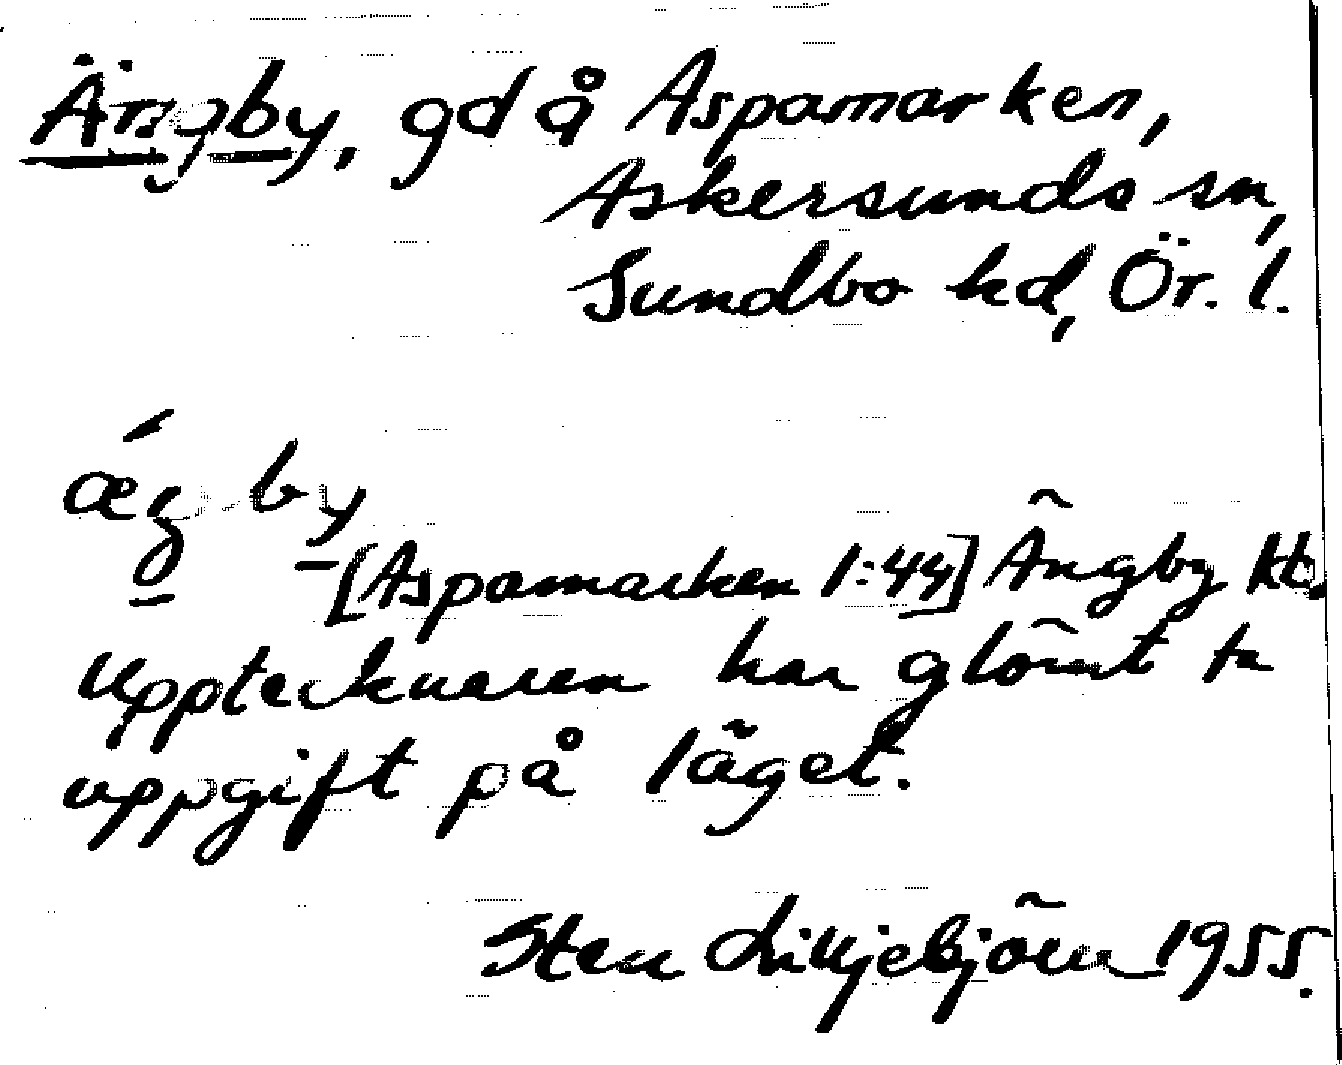 Ängby, gd å Aspamarken,
Askersunds sn,
Sundbo hd, Ör. l.
by
[Aspamarken 1:44] Ängby kt.
Upptecknaren har glömt ta
uppgift på läget.
Sten Liljebjörn 1955.